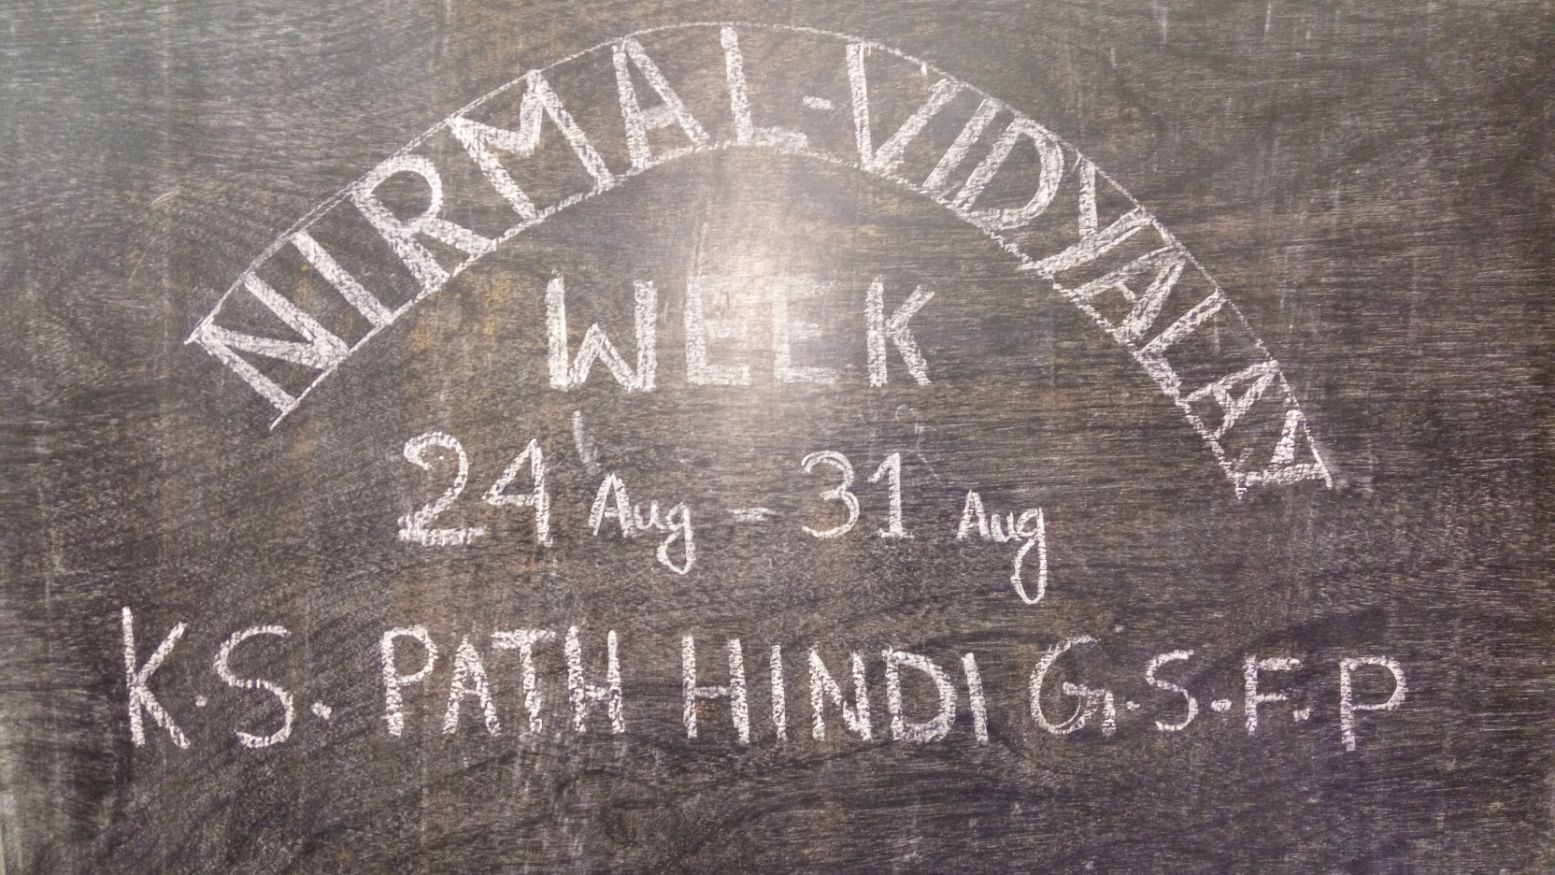 NIRMAL-VIDYALAY
WEEK
24 Aug - 31 Aug
K.S. PATH HINDI G.S.F.P